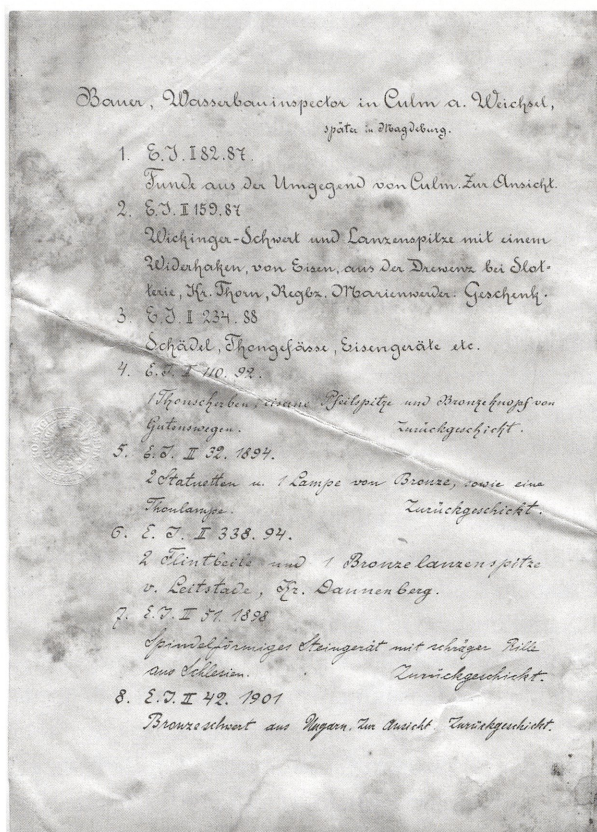 Bauer, Wasserbauinspector in Culm a. Weichsel,
später in Magdeburg.
1. E.J. I 82.87.
Funde aus der Umgegend von Culm. Zur Ansicht.
2. E.J. II 159.87
Wickinger-Schwert und Lanzenspitze mit einem
Widerhaken, von Eisen, aus der Drewenz bei Slot-
terie, Kr. Thorn, Regbz. Marienwerder. Geschenk.
3. E.J. II 234.88
Schädel, Thongefässe, Eisengeräte etc.
4. E.J. 110.92.
1 Thonscherben, eiserne Pfeilspitze und Bronzeknopf von
Gutenswegen. Zurückgeschickt.
5. E.J. II 32.1894.
2 Statuetten u. 1 Lampe von Bronze, sowie eine
Thonlampe. Zurückgeschickt.
6. E.J. II 338.94.
2 Flintbeile und 1 Bronzelanzenspitze
v. Leitstade, Kr. Dannenberg.
7. E.J. II 51.1898
Spindelförmiges Steingerät mit schräger Rille
aus Schlesien. Zurückgeschickt.
8. E.J. II 42.1901
Bronzeschwert aus Ungarn. Zur Ansicht. Zurückgeschickt.